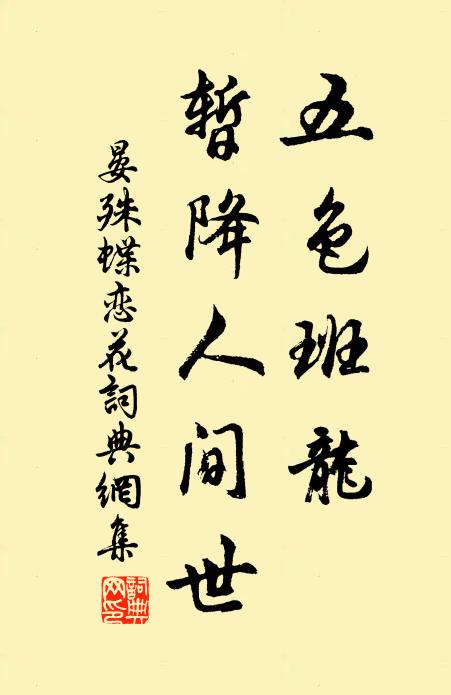 五色班龍
暫降人间世
晏殊蝶恋花詞典網集
詞典网印